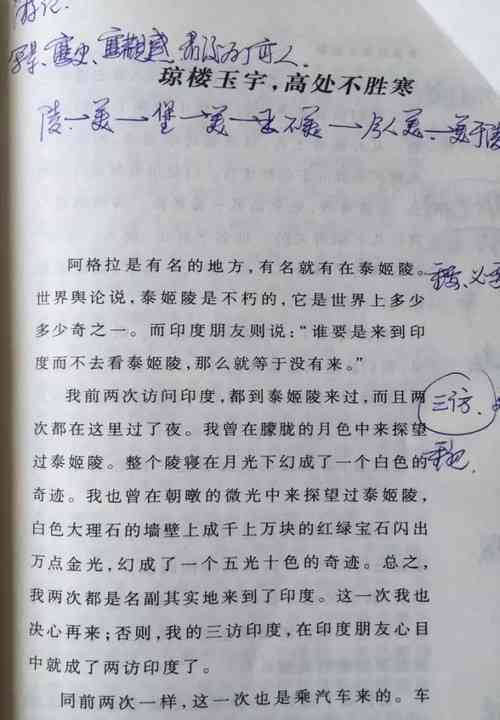 游记.
琼楼玉宇，高处不胜寒
陵→美→堡→美→主不美→今人美→美于陵
阿格拉是有名的地方，有名就有在泰姬陵。
世界舆论说，泰姬陵是不朽的，它是世界上多少
多少奇之一。而印度朋友则说：“谁要是来到印
度而不去看泰姬陵，那么就等于没有来。”
我前两次访问印度，都到泰姬陵来过，而且两
三访.
次都在这里过了夜。我曾在朦胧的月色中来探望
过泰姬陵。整个陵寝在月光下幻成了一个白色的
奇迹。我也曾在朝暾的微光中来探望过泰姬陵，
白色大理石的墙壁上成千上万块的红绿宝石闪出
万点金光，幻成了一个五光十色的奇迹。总之，
我两次都是名副其实地来到了印度。这一次我也
决心再来；否则，我的三访印度，在印度朋友心目
中就成了两访印度了。
同前两次一样，这一次也是乘汽车来的。车